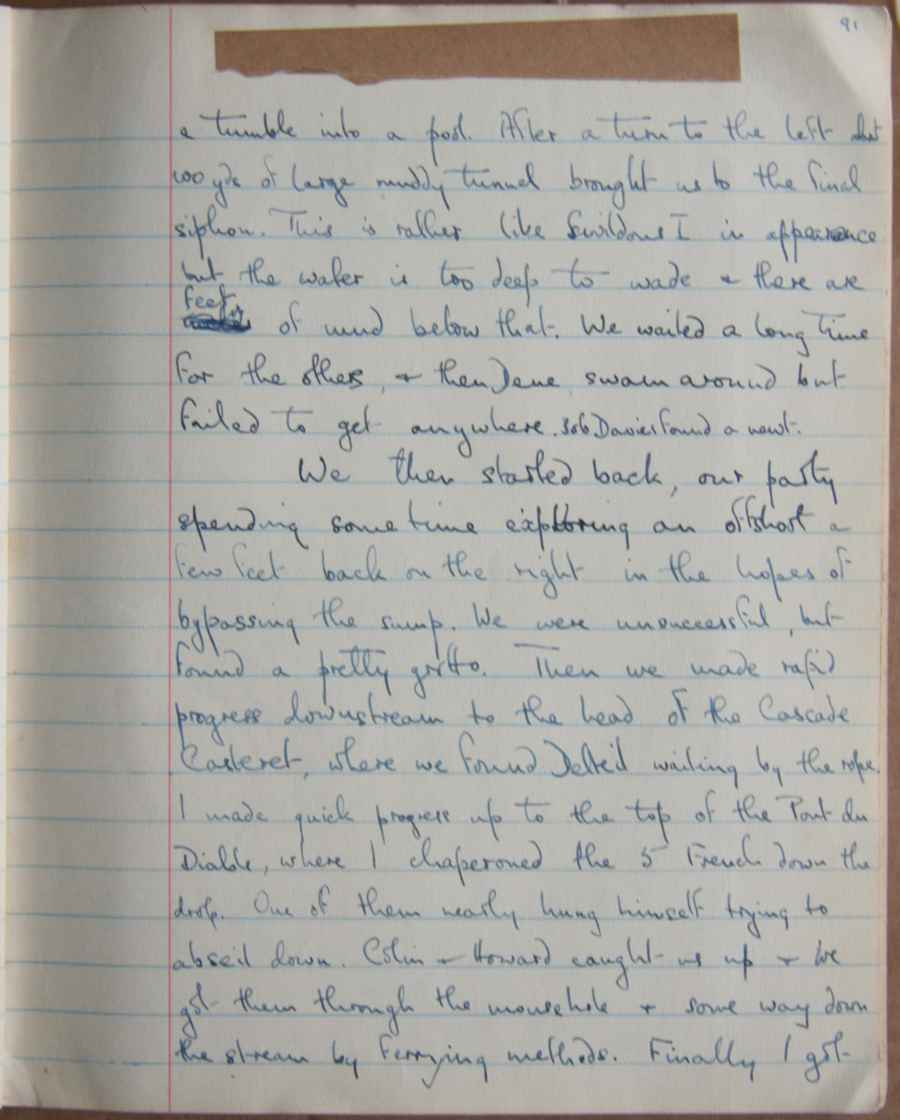 91
a tumble into a pool. After a turn to the left about
100 yds of large muddy tunnel brought us to the final
siphon. This is rather like Swildons I in appearance
but the water is too deep to wade + there are
feet of mud below that. We waited a long time
for the others, + then Dene swam around but
failed to get anywhere. Bob Davies found a newt.
We then started back, our party
spending some time exploring an offshoot a
few feet back on the right in the hopes of
bypassing the sump. We were unsuccessful, but
found a pretty grotto. Then we made rapid
progress downstream to the head of the Cascade
Casteret, where we found Delteil waiting by the rope.
I made quick progress up to the top of the Pont du
Diable, where I chaperoned the 5 French down the
drop. One of them nearly hung himself trying to
abseil down. Colin + Howard caught us up + we
got them through the mousehole + some way down
the stream by ferrying methods. Finally I got